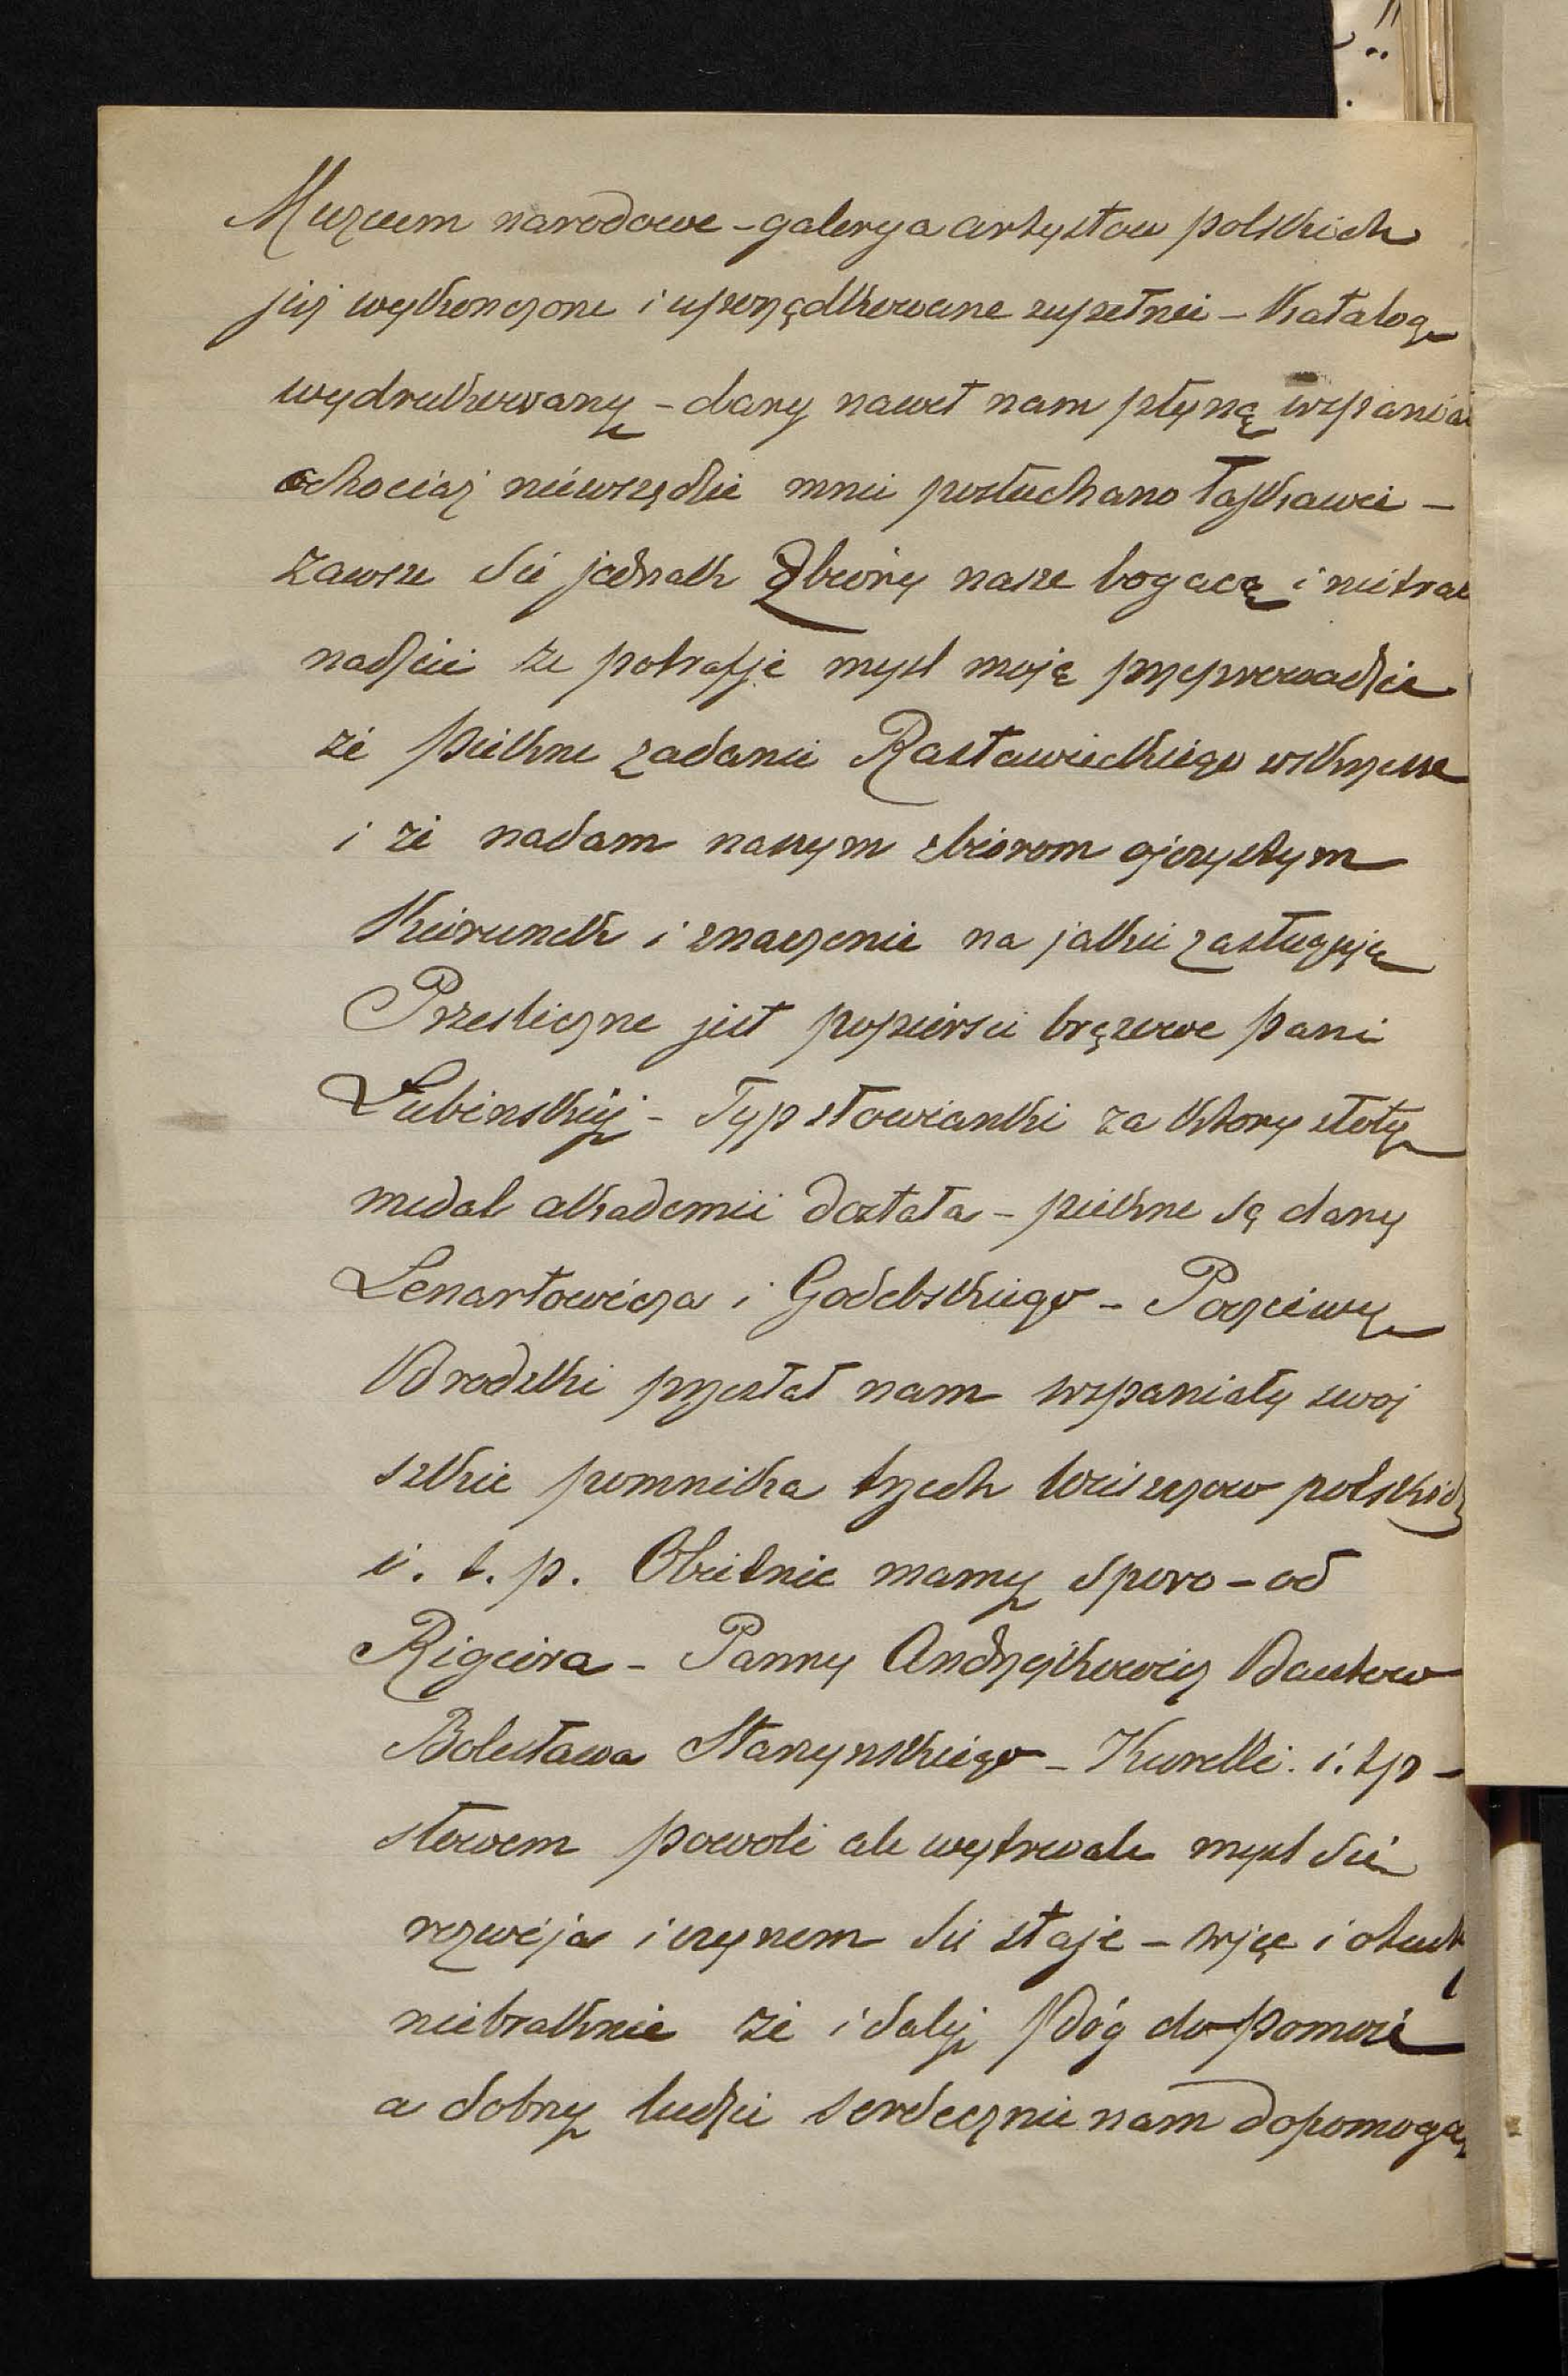 Muzeum narodowe - galerya artystow polskich
już wykonczone i uporządkowane zupełnie - Katalog
wydrukowany - dary nawet nam płyną wspania
chociaż niewszędzie mnie posłuchano łaskawie -
zawsze sie jednak Zbiory nasze bogacą i nietrac
nadzieie że potrafie mysl moję przeprowadzic
że piekne zadanie Rastawieckiego wskrzesze
i że nadam naszym zbiorom ojczystym
Kierunek i znaczenie na jakie zasługują
Przesliczne jest popiersie brązowe pani
Łubinskiej - Typ słowianki za ktory złoty
medal akademii dostała - piekne są dary
Lenartowicza i Godebskiego - Poczciwy
Brodzki przesłał nam wspaniały swoj
szkic pomnika trzech wieszczow polskich
i. t. p. Obietnic mamy sporo - od
Rigiera - Panny Andrzejkowicz Bautow
Bolesława Starzynskiego - Kurelli. i. tp -
słowem powoli ale wytrwale mysl sie
rozwija i czynem sie staje - więc i otuch
niebraknie że i dalej Bóg do pomoże
a dobrzy ludzie serdecznie nam dopomogą